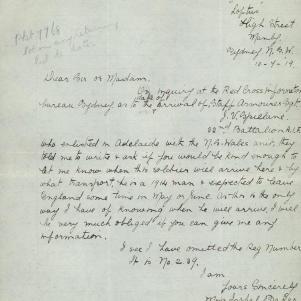 "Loftus"
High Street
Manly
Sydney N.S.W.
10-4-19.
Dear Sir or Madam.
On inquiry at the Red Cross Information
bureau Sydney as to the date of arrival of Staff Armourer Sgt.
J. V.
22nd Battalion A.I.F.
who enlisted in Adelaide with the N.S. Wales unit, they
told me to write & ask if you would be kind enough to
let me know when this soldier will arrive here & by
what transport, he is a 1914 man & expected to leave
England some time in May or June. As this is the only
way I have of knowing when he will arrive, I will
be very much obliged if you can give me any
information.
I see I have omitted the Reg Number
It is No 2.29.
I am
Yours Sincerely